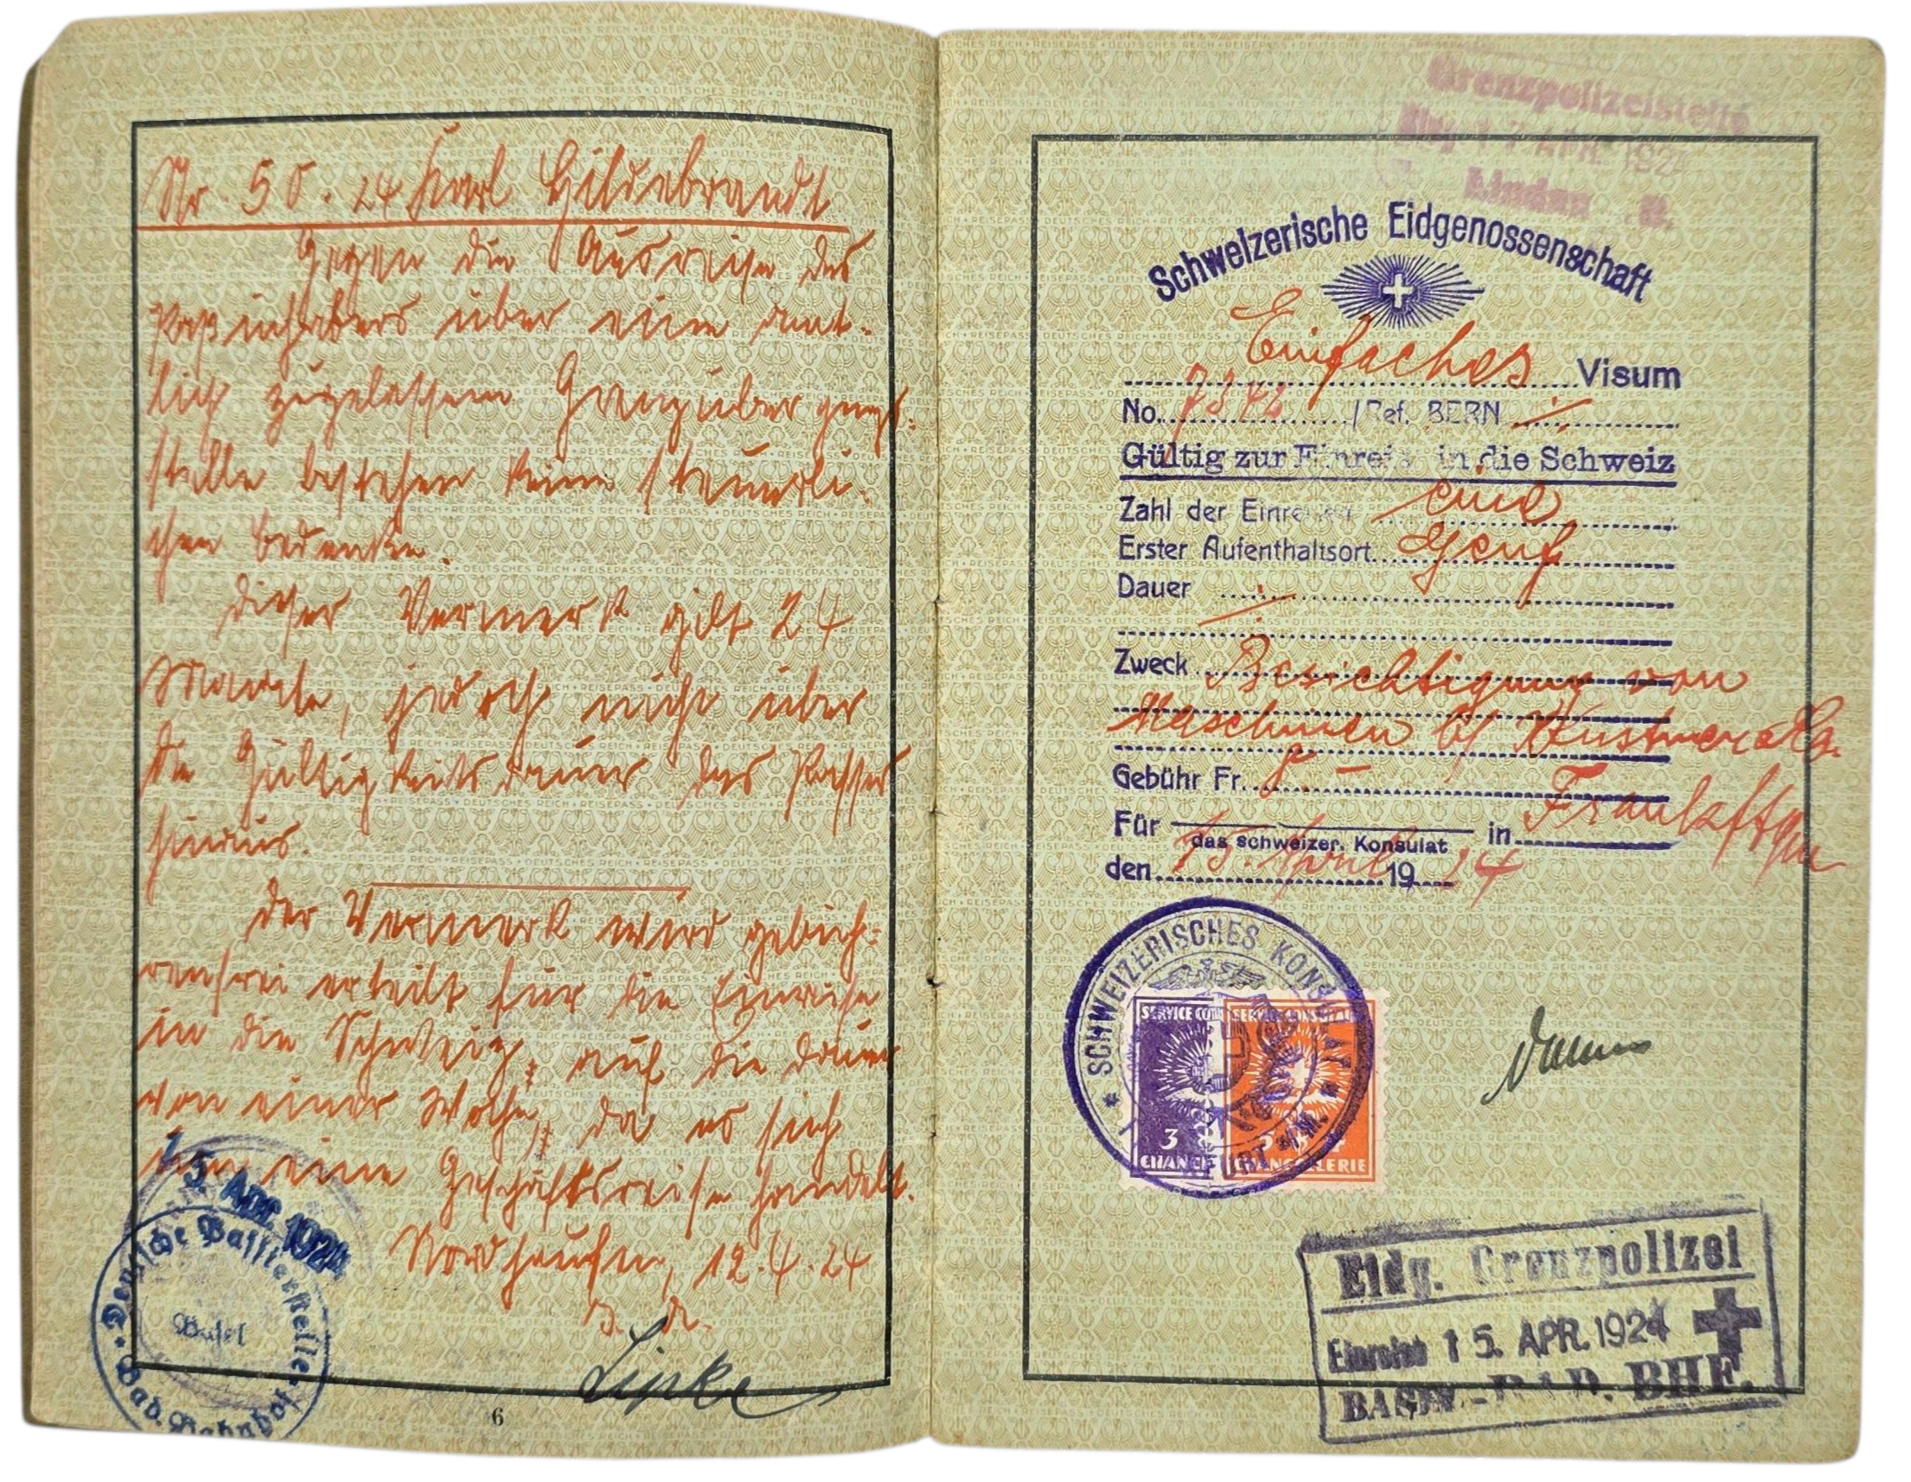 Nr. 50. 24 Karl Hildebrandt
Gegen die Ausreise des
Paßinhabers über eine amt-
lich zugelassene Grenzübergangs-
stelle bestehen keine steuerli-
chen Bedenken.
Dieser Vermerk gilt 24
Monate, jedoch nicht über
die Gültigkeitsdauer des Passes
hinaus.
Der Vermerk wird gebüh-
renfrei erteilt für die Einreise
in die Schweiz, auf die Dauer
von einer Woche, da es sich
um eine Geschäftsreise handelt.
Nordhausen, 12.4.24
Lipke
15. Apr. 1924
Deutsche Passierstelle
Basel
Bad. Bahnhof
6
Grenzpolizeistelle
17 APR. 1924
Lindau i. B.
Schweizerische Eidgenossenschaft
Einfaches Visum
No. 7372 / Ref. BERN
Gültig zur Einreise in die Schweiz
Zahl der Einreisen eine
Erster Aufenthaltsort Genf
Dauer
Zweck Besichtigung von
Maschinen b/
Gebühr Fr. 8 –
Für das schweizer. Konsulat in Frankft
den 15. April 1924
SCHWEIZERISCHES KONSULAT
FRANKFURT a/M.
SERVICE CONSULAIRE
3
CHANCELLERIE
SERVICE CONSULAIRE
5
CHANCELLERIE
Eidg. Grenzpolizei
Einreise 15. APR. 1924
BASEL - BAD. BHF.